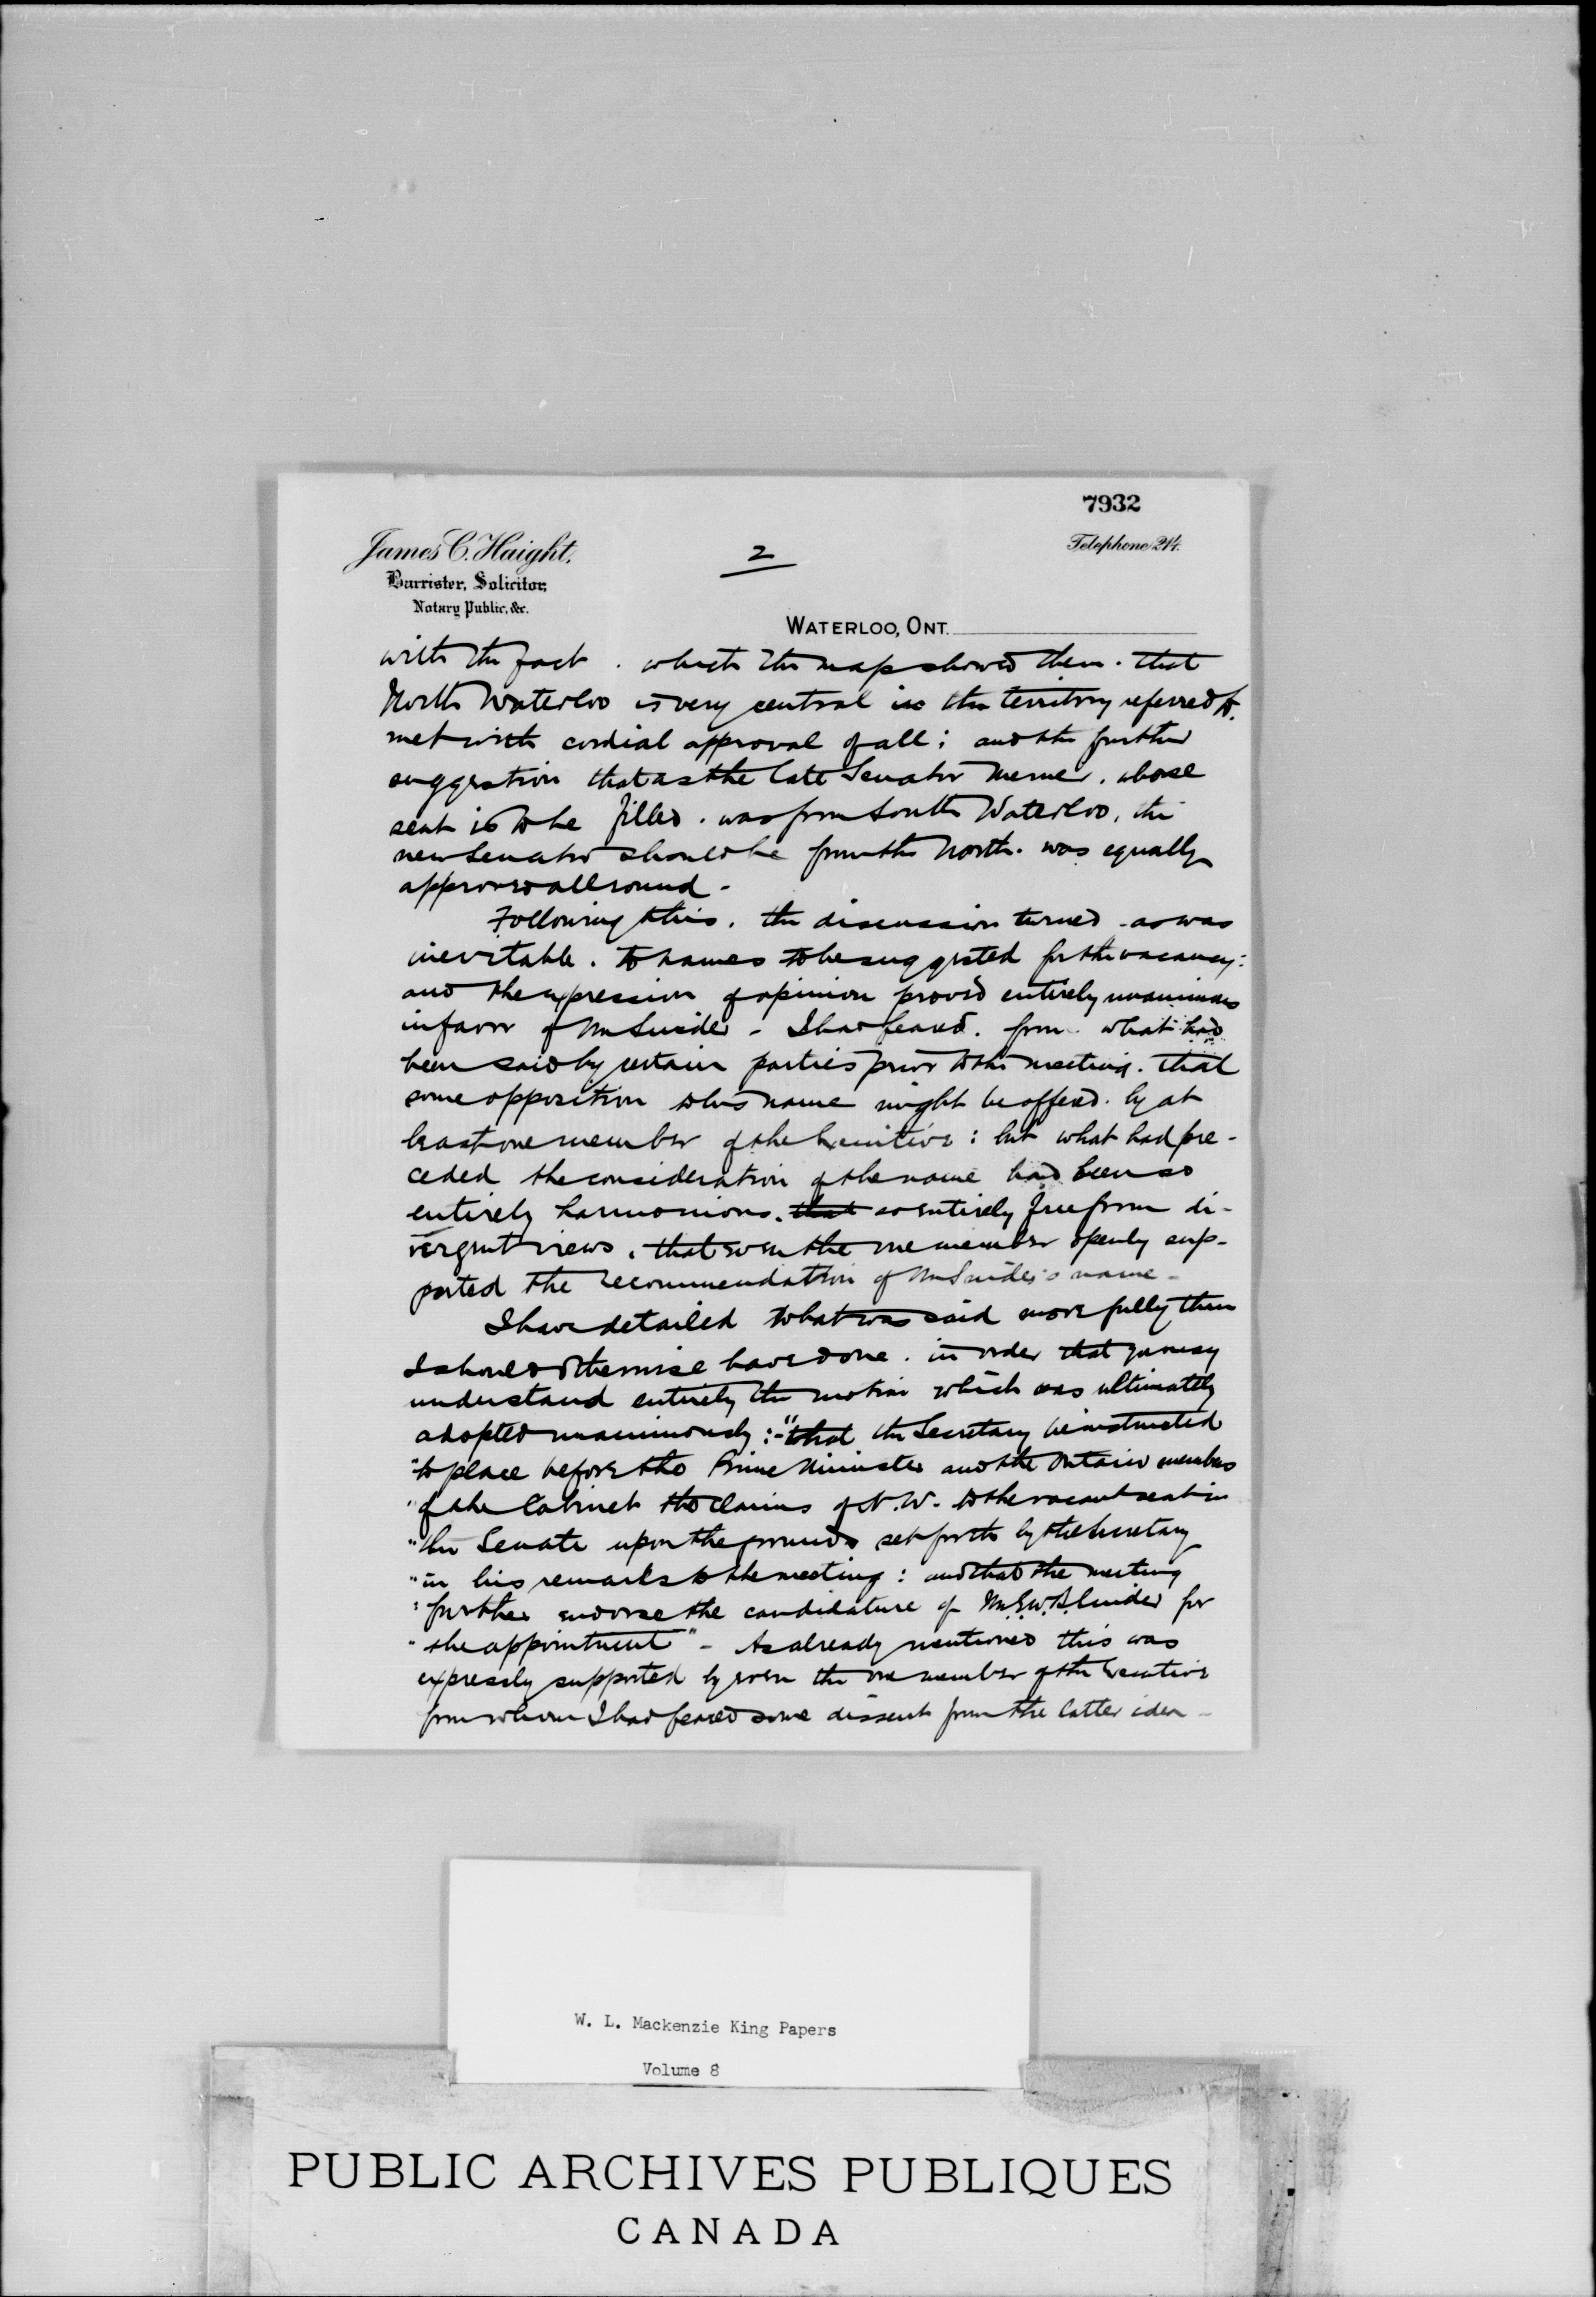 7932
James C. Haight.
Barrister, Solicitor,
Notary Public, &c.
2
Telephone 214.
WATERLOO, ONT.
with the fact . which the map showed them . that
North Waterloo is very central in the territory referred to.
met with cordial approval of all ; and the further
suggestion that as the late Senator Merner . whose
seat is to be filled . was from South Waterloo, the
new Senator should be from the North . was equally
approved all round -
Following this . the discussion turned - as was
inevitable . to names to be suggested for the vacancy :
and the expression of opinion proved entirely unanimous
in favor of Mr Snider - I had feared . from what had
been said by certain parties prior to the meeting . that
some opposition to his name might be offered . by at
least one member of the Executive : but what had pre-
ceded the consideration of the name had been so
entirely harmonious . that so entirely free from di-
vergent views , that even the one member openly sup-
ported the recommendation of Mr Snider's name -
I have detailed what was said more fully than
I should otherwise have done . in order that you may
understand entirely the motion which was ultimately
adopted unanimously :- "that the Secretary be instructed
"to place before the Prime Minister and the Ontario members
"of the Cabinet the claims of N. W. to the vacant seat in
"the Senate upon the grounds set forth by the Secretary
"in his remarks to the meeting : and that the meeting
"further endorse the candidature of Mr E.W.B. Snider for
"the appointment" - As already mentioned this was
expressly supported by even the one member of the Executive
from whom I had feared some dissent from the latter idea -
W. L. Mackenzie King Papers
Volume 8
PUBLIC ARCHIVES PUBLIQUES
CANADA